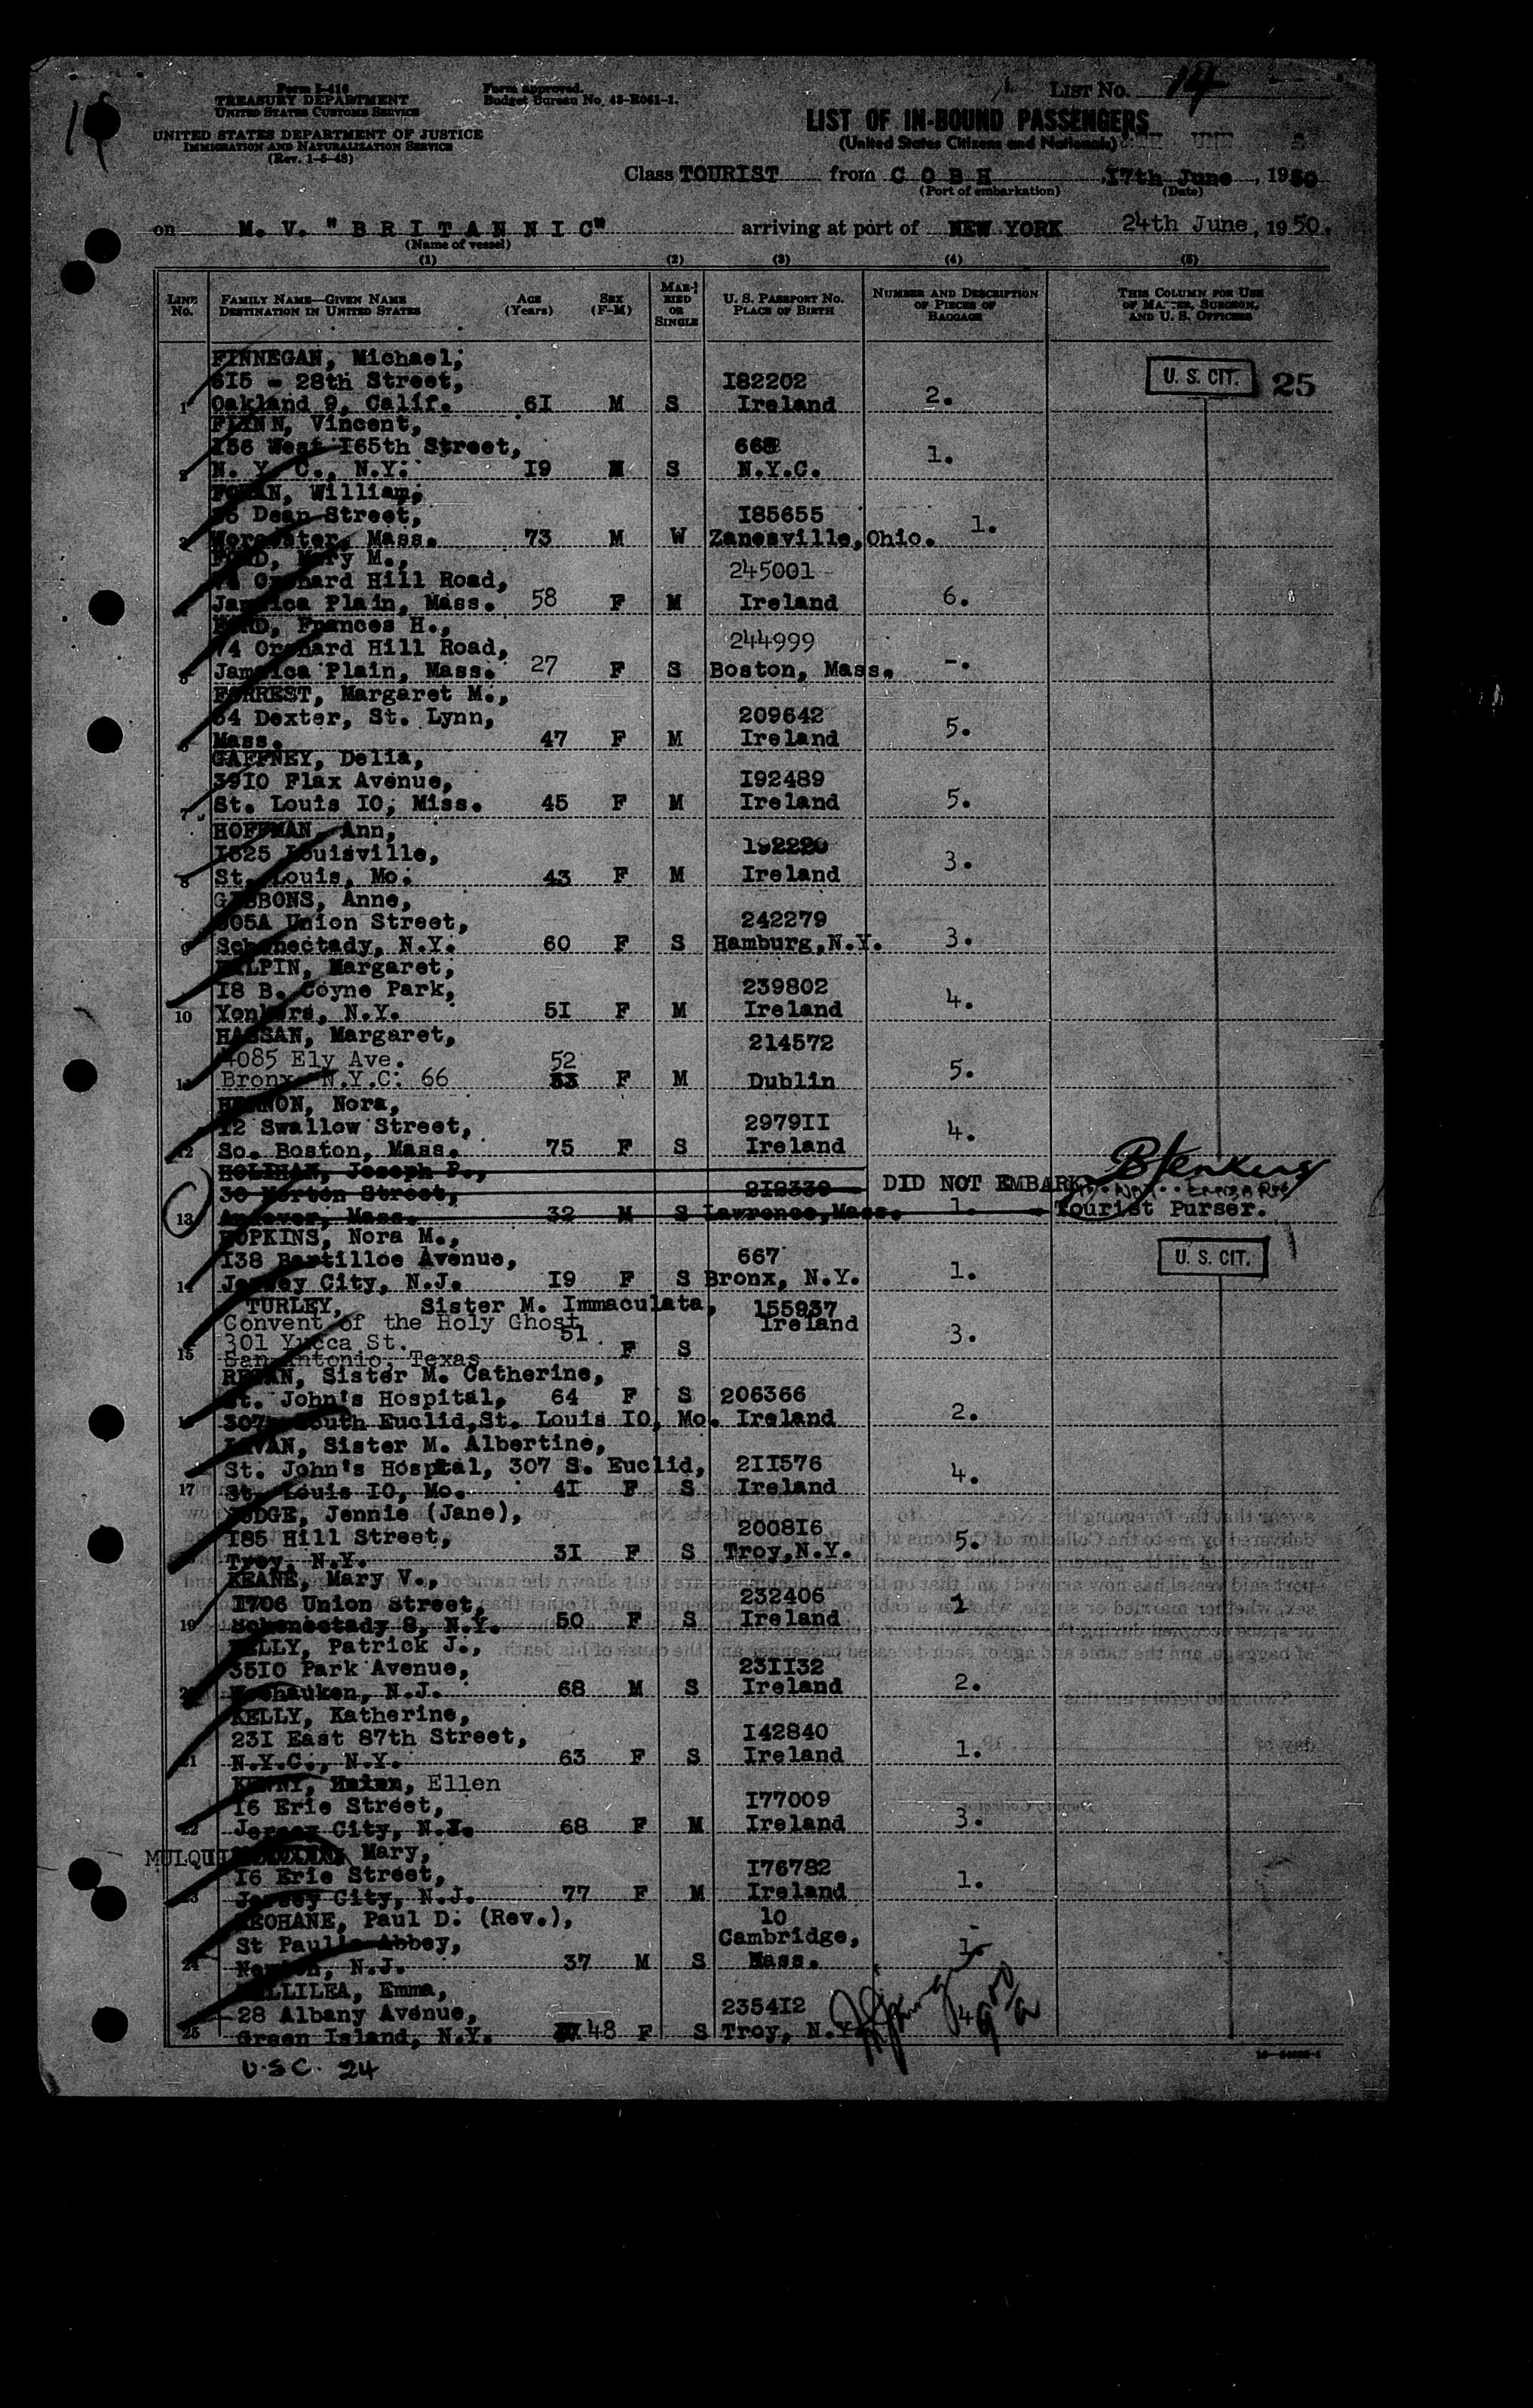 Form I-416
TREASURY DEPARTMENT
UNITED STATES CUSTOMS SERVICE
UNITED STATES DEPARTMENT OF JUSTICE
IMMIGRATION AND NATURALIZATION SERVICE
(Rev. 1-5-48)
Form approved.
Budget Bureau No. 43-R061-1.
LIST No. 14
LIST OF IN-BOUND PASSENGERS
(United States Citizens and Nationals)
Class TOURIST from C O B H , 17th June , 1950
(Port of embarkation) (Date)
on M. V. "B R I T A N N I C" arriving at port of NEW YORK 24th June, 1950.
(Name of vessel)
(1) (2) (3) (4) (5)
LINE No. FAMILY NAME—GIVEN NAME DESTINATION IN UNITED STATES AGE (Years) SEX (F-M) MARRIED OR SINGLE U. S. PASSPORT No. PLACE OF BIRTH NUMBER AND DESCRIPTION OF PIECES OF BAGGAGE THIS COLUMN FOR USE OF MASTER, SURGEON, AND U. S. OFFICERS
FINNEGAN, Michael,
615 - 28th Street, I82202 U. S. CIT. 25
1 Oakland 9, Calif. 6I M S Ireland 2.
FLINN, Vincent,
I56 West I65th Street, 668
2 N. Y. C., N.Y. I9 M S N.Y.C. 1.
William,
Dean Street, I85655
3 Worcester, Mass. 73 M W Zanesville, Ohio. 1.
FORD, Mary M.,
74 Orchard Hill Road, 245001
Jamaica Plain, Mass. 58 F M Ireland 6.
FORD, Frances H.,
74 Orchard Hill Road, 244999
5 Jamaica Plain, Mass. 27 F S Boston, Mass. -.
FORREST, Margaret M.,
54 Dexter, St. Lynn, 209642
6 Mass. 47 F M Ireland 5.
GAFFNEY, Delia,
39I0 Flax Avenue, I92489
7 St. Louis I0, Miss. 45 F M Ireland 5.
HOFFMAN, Ann,
I525 Louisville, 192220
8 St. Louis, Mo. 43 F M Ireland 3.
GIBBONS, Anne,
905A Union Street, 242279
9 Schenectady, N.Y. 60 F S Hamburg, N.Y. 3.
HALPIN, Margaret,
I8 B. Coyne Park, 239802
10 Yonkers, N.Y. 5I F M Ireland 4.
HASSAN, Margaret, 214572
4085 Ely Ave. 52
11 Bronx N.Y.C. 66 53 F M Dublin 5.
Nora,
I2 Swallow Street, 2979II
12 So. Boston, Mass. 75 F S Ireland 4.
HOLIHAN, Joseph P.,
30 Morton Street, 2I2330 DID NOT EMBARK BJenkins
13 Andover, Mass. 32 M S Lawrence, Mass. 1. Tourist Purser.
HOPKINS, Nora M.,
I38 Bartilloe Avenue, 667 U. S. CIT.
14 Jersey City, N.J. I9 F S Bronx, N.Y. 1.
TURLEY, Sister M. Immaculata, 155937
Convent of the Holy Ghost Ireland
301 Yucca St. 51
15 San Antonio, Texas F S 3.
REGAN, Sister M. Catherine,
St. John's Hospital, 64 F S 206366
307 South Euclid, St. Louis I0, Mo. Ireland 2.
Sister M. Albertine,
St. John's Hosptal, 307 S. Euclid, 2II576
17 St. Louis I0, Mo. 4I F S Ireland 4.
JUDGE, Jennie (Jane),
I85 Hill Street, 2008I6
Troy, N.Y. 3I F S Troy, N.Y. 5.
KEANE, Mary V.,
I706 Union Street, 232406
19 Schenectady 8, N.Y. 50 F S Ireland 1
KELLY, Patrick J.,
35I0 Park Avenue, 23II32
Weehauken, N.J. 68 M S Ireland 2.
KELLY, Katherine,
23I East 87th Street, I42840
21 N.Y.C., N.Y. 63 F S Ireland 1.
KENNY, Ellen
I6 Erie Street, I77009
22 Jersey City, N.J. 68 F M Ireland 3.
Mary,
I6 Erie Street, I76782
23 Jersey City, N.J. 77 F M Ireland 1.
KEOHANE, Paul D. (Rev.), 10
St Paul's Abbey, Cambridge,
24 Newton, N.J. 37 M S Mass. 1.
Emma,
28 Albany Avenue, 2354I2
25 Green Island, N.Y. 48 F S Troy, N.Y. 4
U.S.C. 24